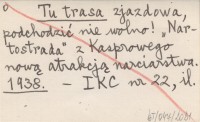 Tu trasa zjazdowa,
podchodzić nie wolno! „Nar-
tostrada" z Kasprowego
nową atrakcją narciarstwa.
1938. - IKC nr 22, il.